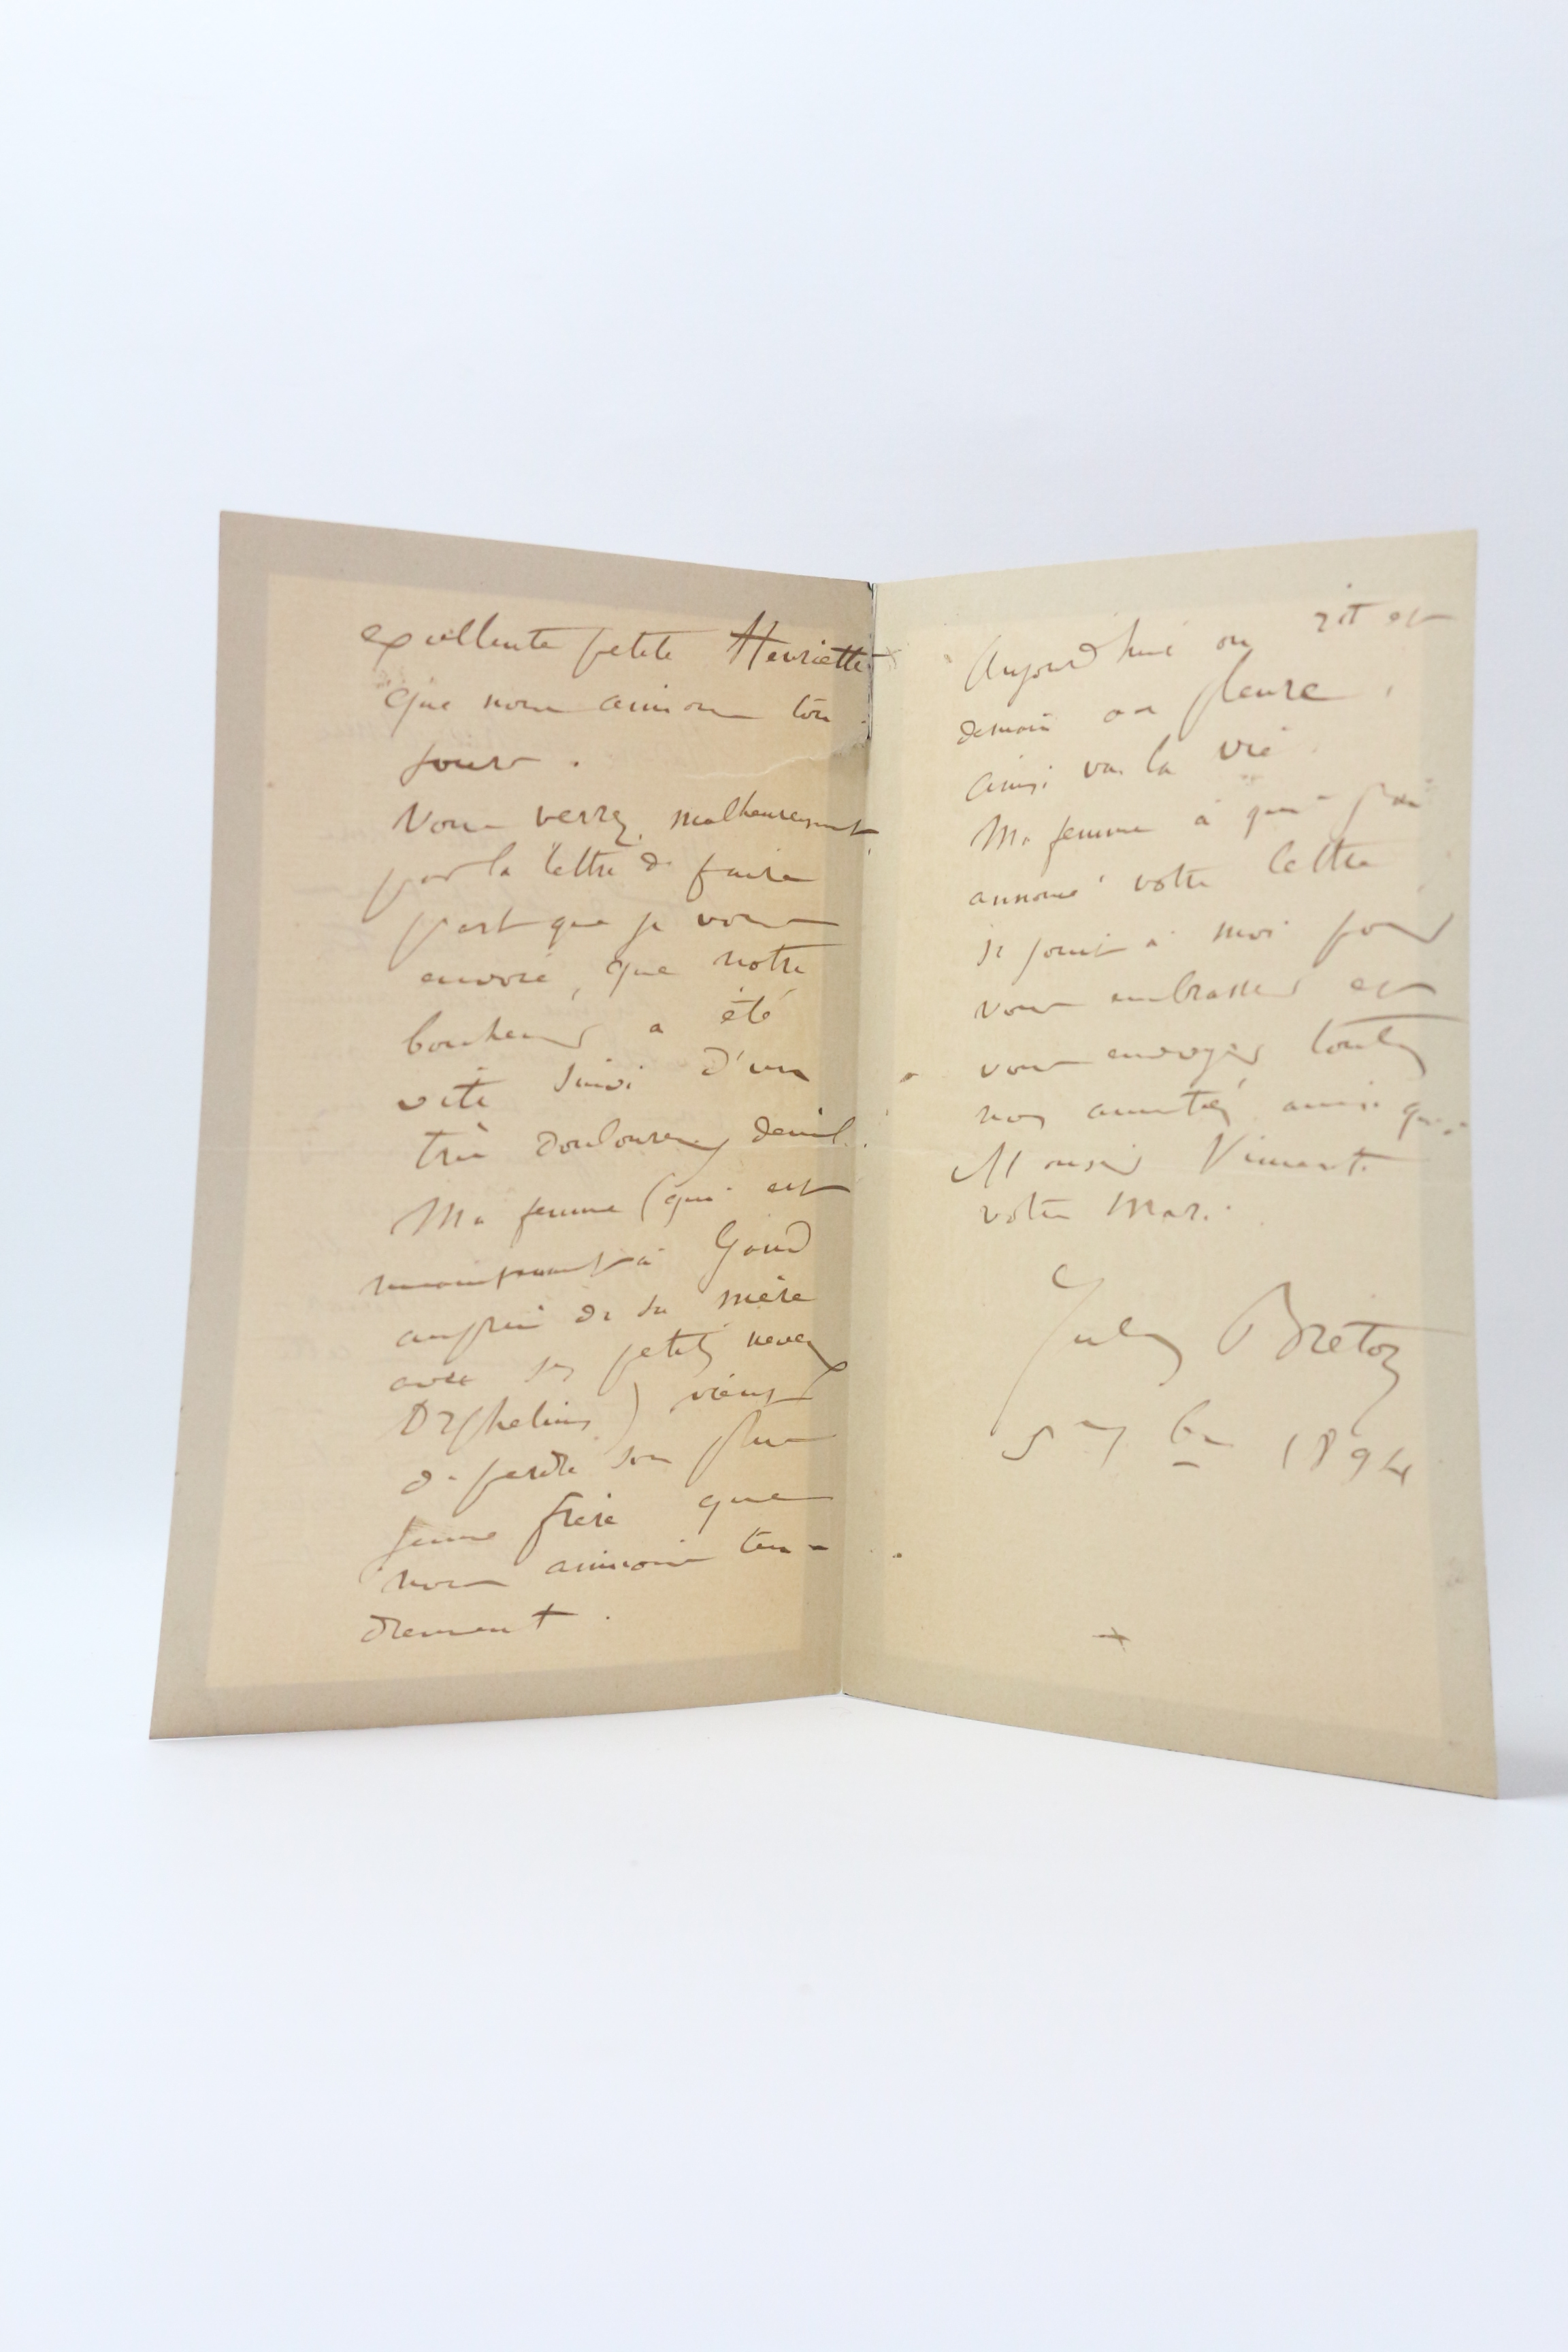 excellente petite Henriette
que nous aimons tou
jours.
Vous verrez, malheureusement
par la lettre de faire
part que je vous
envoie, que notre
bonheur a été
vite suivi d'un
très douloureux deuil.
Ma femme (qui est
maintenant à Gand
auprès de sa mère
avec ses petits neveux
Orphelins) vient
de perdre son plus
jeune frère que
nous aimions ten-
drement.
Aujourd'hui on rit et
demain on pleure,
ainsi va la vie.
Ma femme à qui j'ai
annoncé votre lettre
se joint à moi pour
vous embrasser et
vous envoyer toutes
nos amitiés ainsi qu'à
Monsieur Vimont
votre mari.
Jules Breton
5 7bre 1894